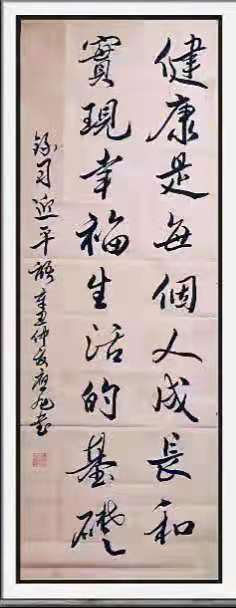 健康是每個人成長和
實現幸福生活的基礎
錄習近平語 辛丑仲夏